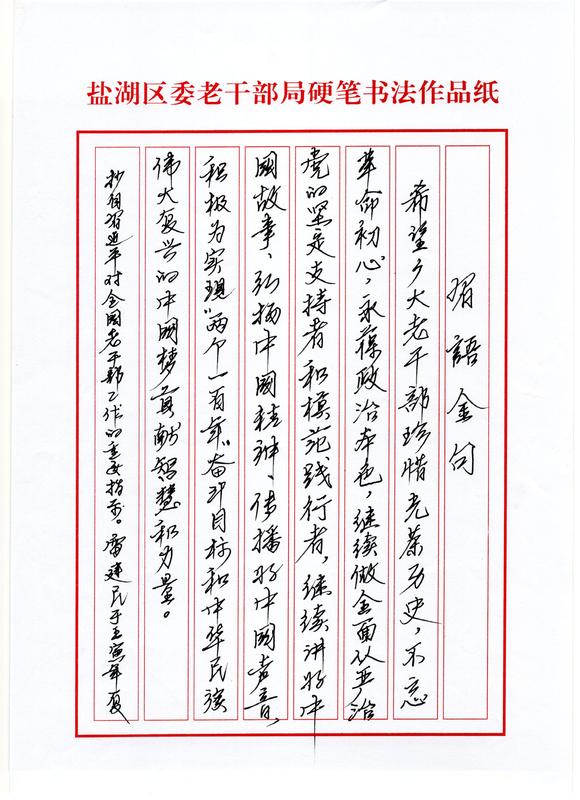 盐湖区委老干部局硬笔书法作品纸
習語金句
希望广大老干部珍惜光荣历史，不忘
革命初心，永葆政治本色，继续做全面从严治
党的坚定支持者和模范践行者，继续讲好中
國故事、弘扬中國精神、传播好中國声音，
积极为实现“两个一百年”奋斗目标和中华民族
伟大复兴的中國梦贡献智慧和力量。
抄自習近平对全國老干部工作的重要指示。雷建民于壬寅年夏